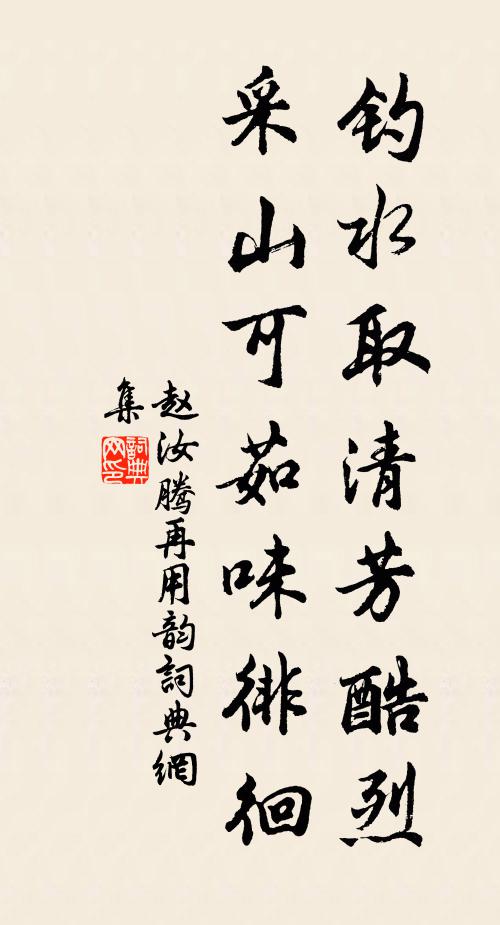 钓水取清芳酷烈
采山可茹味徘徊
赵汝腾再用韵詞典網
集
詞典網印